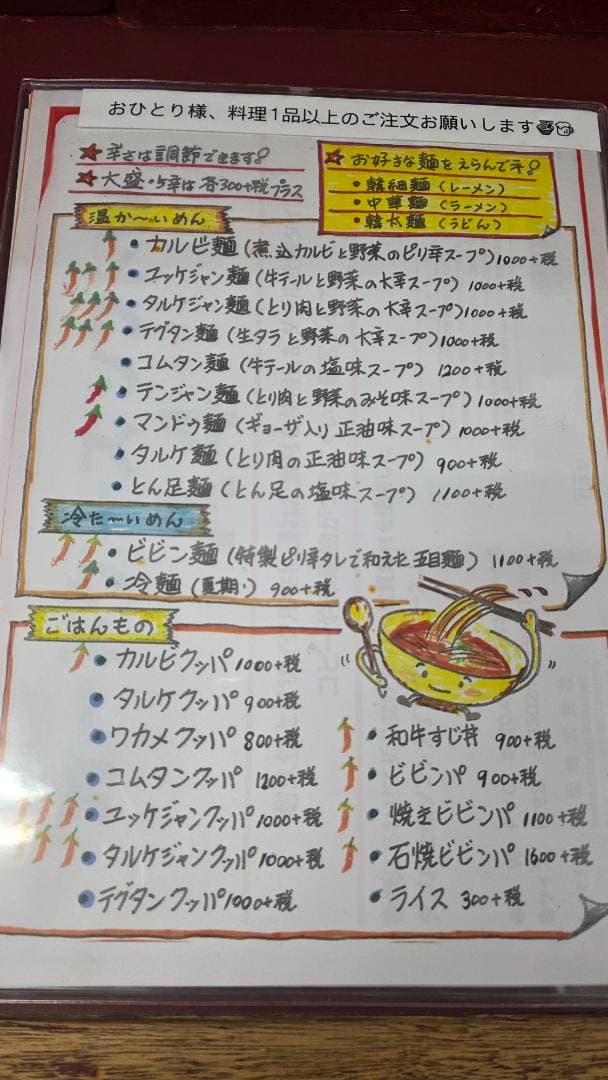 おひとり様、料理1品以上のご注文お願いします
★ 辛さは調節できます!
★ 大盛・5辛は各300+税プラス
★ お好きな麺をえらんでネ!
・韓細麺(レーメン)
・中華麺(ラーメン)
・韓太麺(うどん)
温か〜いめん
・カルビ麺(煮込カルビと野菜のピリ辛スープ)1000+税
・ユッケジャン麺(牛テールと野菜の大辛スープ)1000+税
・タルケジャン麺(とり肉と野菜の大辛スープ)1000+税
・テグタン麺(生タラと野菜の大辛スープ)1000+税
・コムタン麺(牛テールの塩味スープ)1200+税
・テンジャン麺(とり肉と野菜のみそ味スープ)1000+税
・マンドゥ麺(ギョーザ入り正油味スープ)1000+税
・タルケ麺(とり肉の正油味スープ)900+税
・とん足麺(とん足の塩味スープ)1100+税
冷た〜いめん
・ビビン麺(特製ピリ辛タレで和えた五目麺)1100+税
・冷麺(夏期・)900+税
ごはんもの
・カルビクッパ1000+税
・タルケクッパ900+税
・ワカメクッパ800+税
・コムタンクッパ1200+税
・ユッケジャンクッパ1000+税
・タルケジャンクッパ1000+税
・テグタンクッパ1000+税
・和牛すじ丼900+税
・ビビンパ900+税
・焼きビビンパ1100+税
・石焼ビビンパ1600+税
・ライス300+税